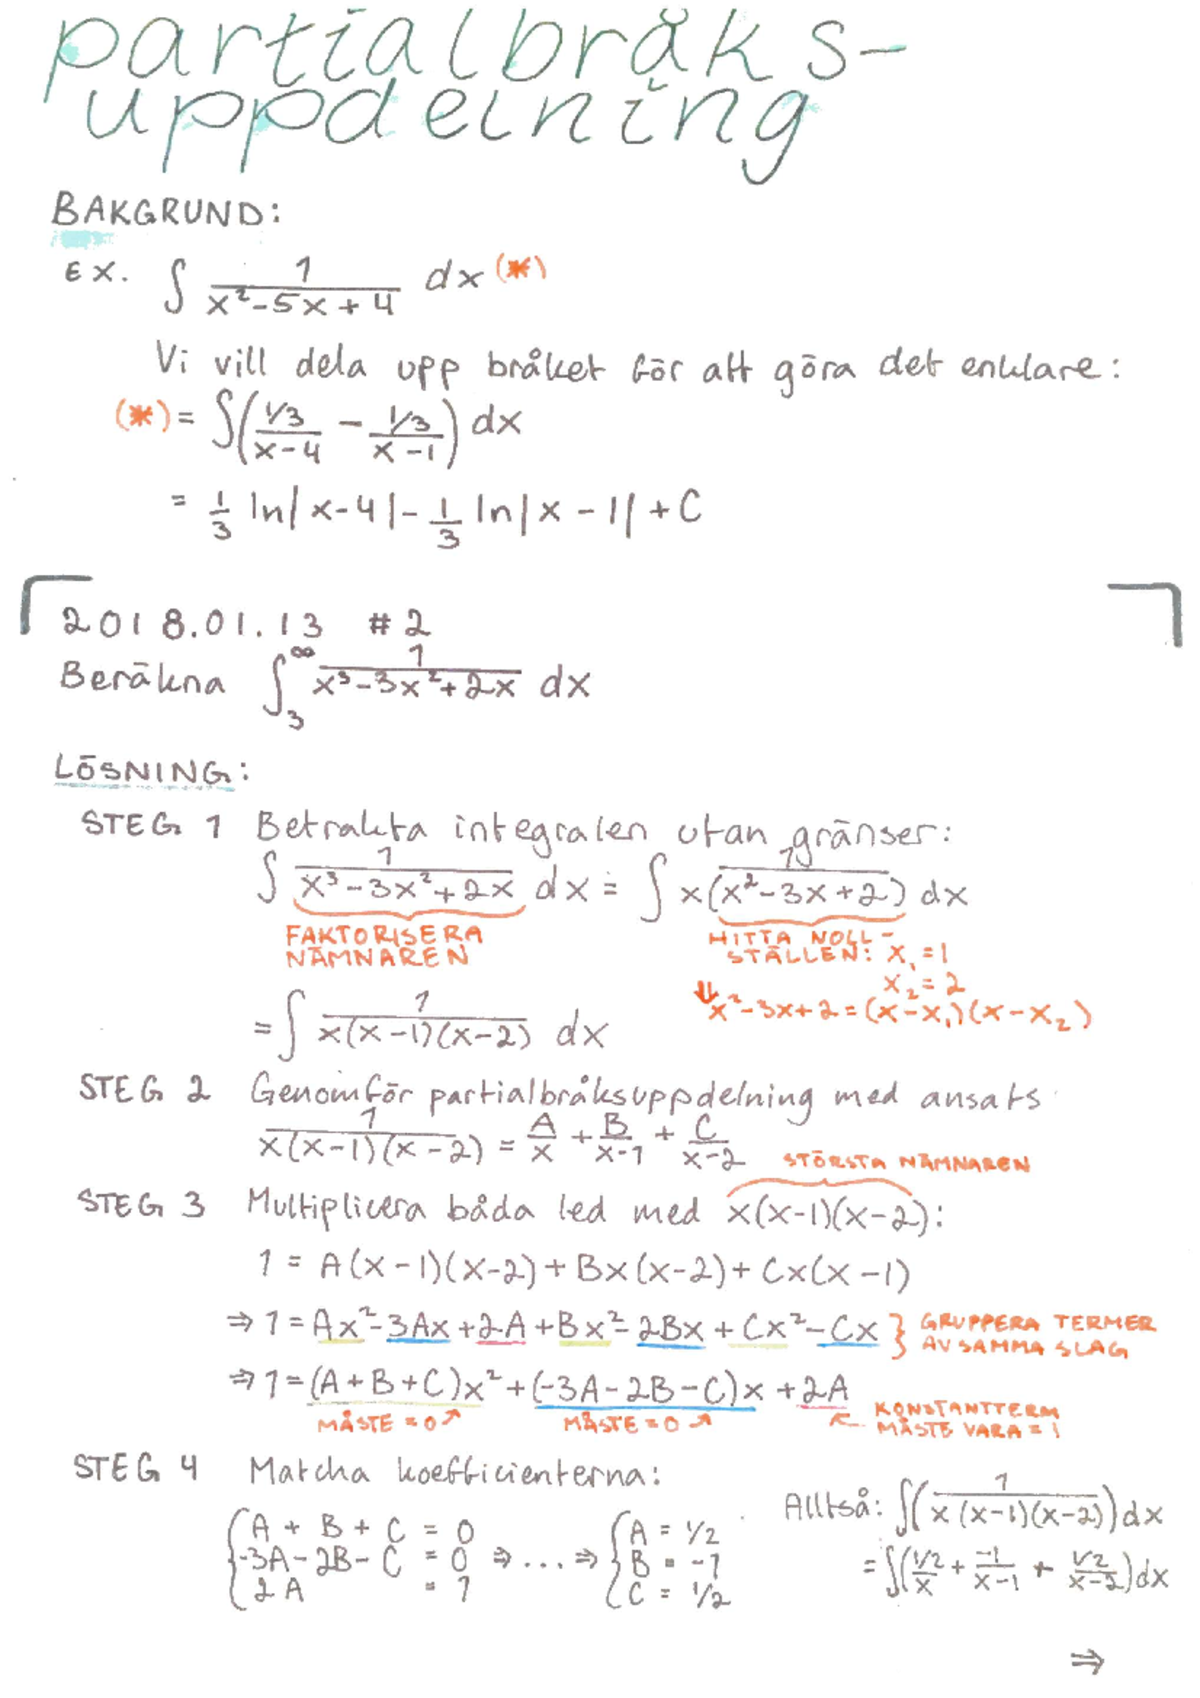 partialbråks-
uppdelning
BAKGRUND:
EX. ∫ 1/(x²-5x+4) dx (*)
Vi vill dela upp bråket för att göra det enklare:
(*) = ∫( (1/3)/(x-4) - (1/3)/(x-1) ) dx
= 1/3 ln|x-4| - 1/3 ln|x-1| + C
2018.01.13 #2
Beräkna ∫₃^∞ 1/(x³-3x²+2x) dx
LÖSNING:
STEG 1 Betrakta integralen utan gränser:
∫ 1/(x³-3x²+2x) dx = ∫ 1/(x(x²-3x+2)) dx
FAKTORISERA
NÄMNAREN
HITTA NOLL-
STÄLLEN: x₁=1
x₂=2
⇓ x²-3x+2=(x-x₁)(x-x₂)
= ∫ 1/(x(x-1)(x-2)) dx
STEG 2 Genomför partialbråksuppdelning med ansats
1/(x(x-1)(x-2)) = A/x + B/(x-1) + C/(x-2)
STÖRSTA NÄMNAREN
STEG 3 Multiplicera båda led med x(x-1)(x-2):
1 = A(x-1)(x-2)+Bx(x-2)+Cx(x-1)
⇒ 1=Ax²-3Ax+2A+Bx²-2Bx+Cx²-Cx } GRUPPERA TERMER
AV SAMMA SLAG
⇒ 1=(A+B+C)x²+(-3A-2B-C)x+2A
MÅSTE=0 ↗ MÅSTE=0 ↗ ↖ KONSTANTTERM
MÅSTE VARA=1
STEG 4 Matcha koefficienterna:
{A + B + C = 0
-3A-2B-C = 0 ⇒ ... ⇒
2A = 1
{A = 1/2
B = -1
C = 1/2
Alltså: ∫( 1/(x(x-1)(x-2)) )dx
= ∫( (1/2)/x + (-1)/(x-1) + (1/2)/(x-2) )dx
⇒